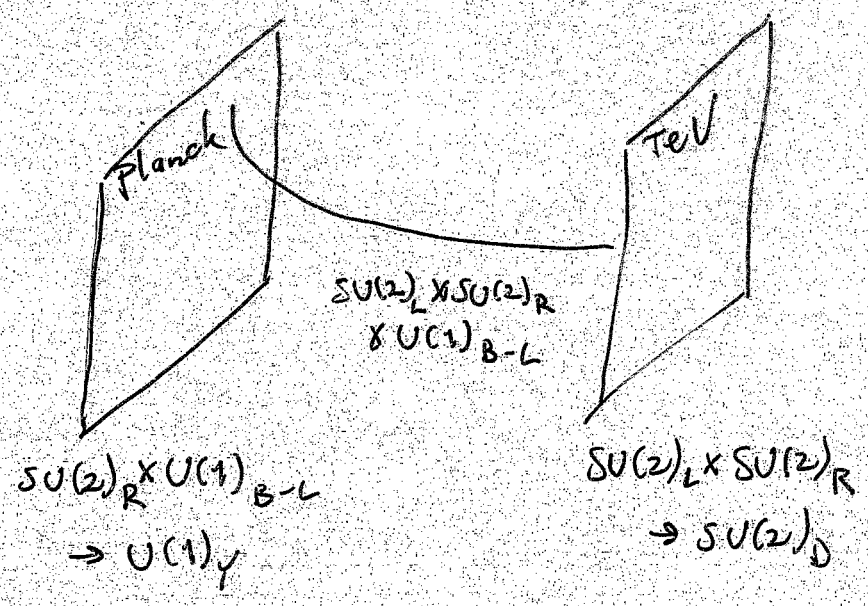 Planck
TeV
SU(2)_L × SU(2)_R
× U(1)_{B-L}
SU(2)_R × U(1)_{B-L}
→ U(1)_Y
SU(2)_L × SU(2)_R
→ SU(2)_D